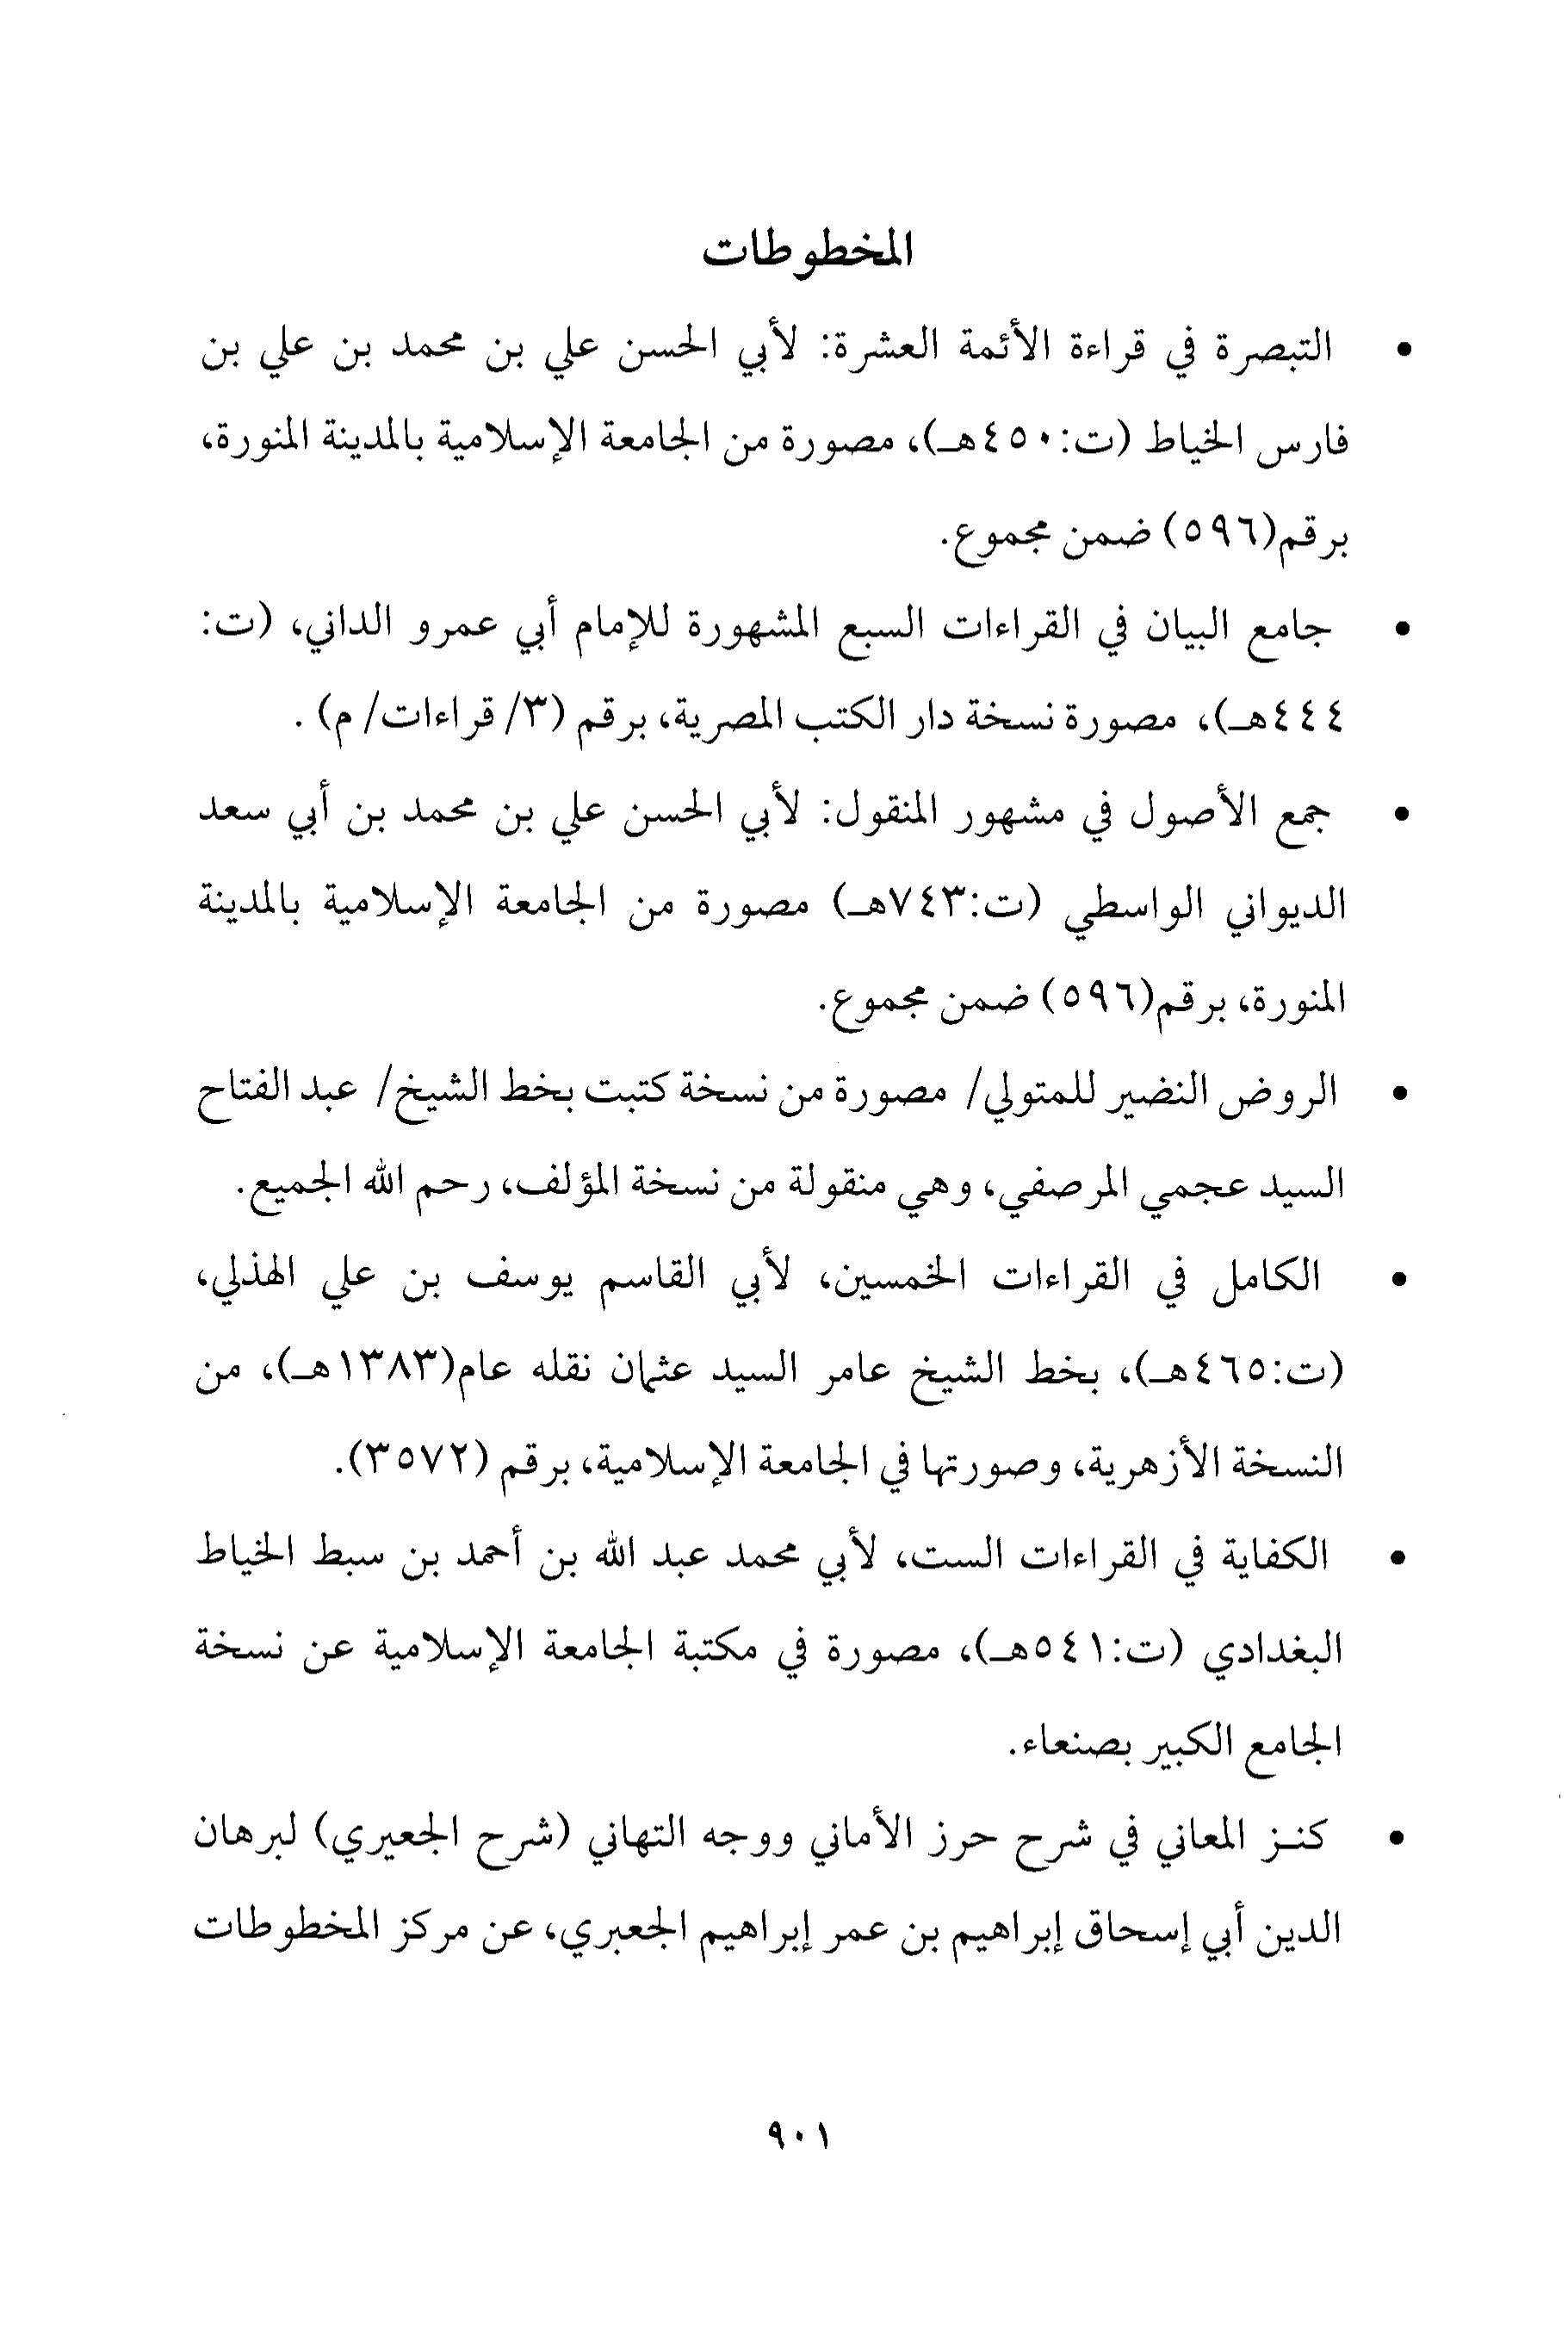 المخطوطات
• التبصرة في قراءة الأئمة العشرة: لأبي الحسن علي بن محمد بن علي بن
فارس الخياط (ت:٤٥٠هـ)، مصورة من الجامعة الإسلامية بالمدينة المنورة،
برقم(٥٩٦) ضمن مجموع.
• جامع البيان في القراءات السبع المشهورة للإمام أبي عمرو الداني، (ت:
٤٤٤هـ)، مصورة نسخة دار الكتب المصرية، برقم (٣/ قراءات/ م) .
• جمع الأصول في مشهور المنقول: لأبي الحسن علي بن محمد بن أبي سعد
الديواني الواسطي (ت:٧٤٣هـ) مصورة من الجامعة الإسلامية بالمدينة
المنورة، برقم(٥٩٦) ضمن مجموع.
• الروض النضير للمتولي/ مصورة من نسخة كتبت بخط الشيخ/ عبد الفتاح
السيد عجمي المرصفي، وهي منقولة من نسخة المؤلف، رحم الله الجميع.
• الكامل في القراءات الخمسين، لأبي القاسم يوسف بن علي الهذلي،
(ت:٤٦٥هـ)، بخط الشيخ عامر السيد عثمان نقله عام(١٣٨٣هـ)، من
النسخة الأزهرية، وصورتها في الجامعة الإسلامية، برقم (٣٥٧٢).
• الكفاية في القراءات الست، لأبي محمد عبد الله بن أحمد بن سبط الخياط
البغدادي (ت:٥٤١هـ)، مصورة في مكتبة الجامعة الإسلامية عن نسخة
الجامع الكبير بصنعاء.
• كنـز المعاني في شرح حرز الأماني ووجه التهاني (شرح الجعيري) لبرهان
الدين أبي إسحاق إبراهيم بن عمر إبراهيم الجعبري، عن مركز المخطوطات
٩٠١